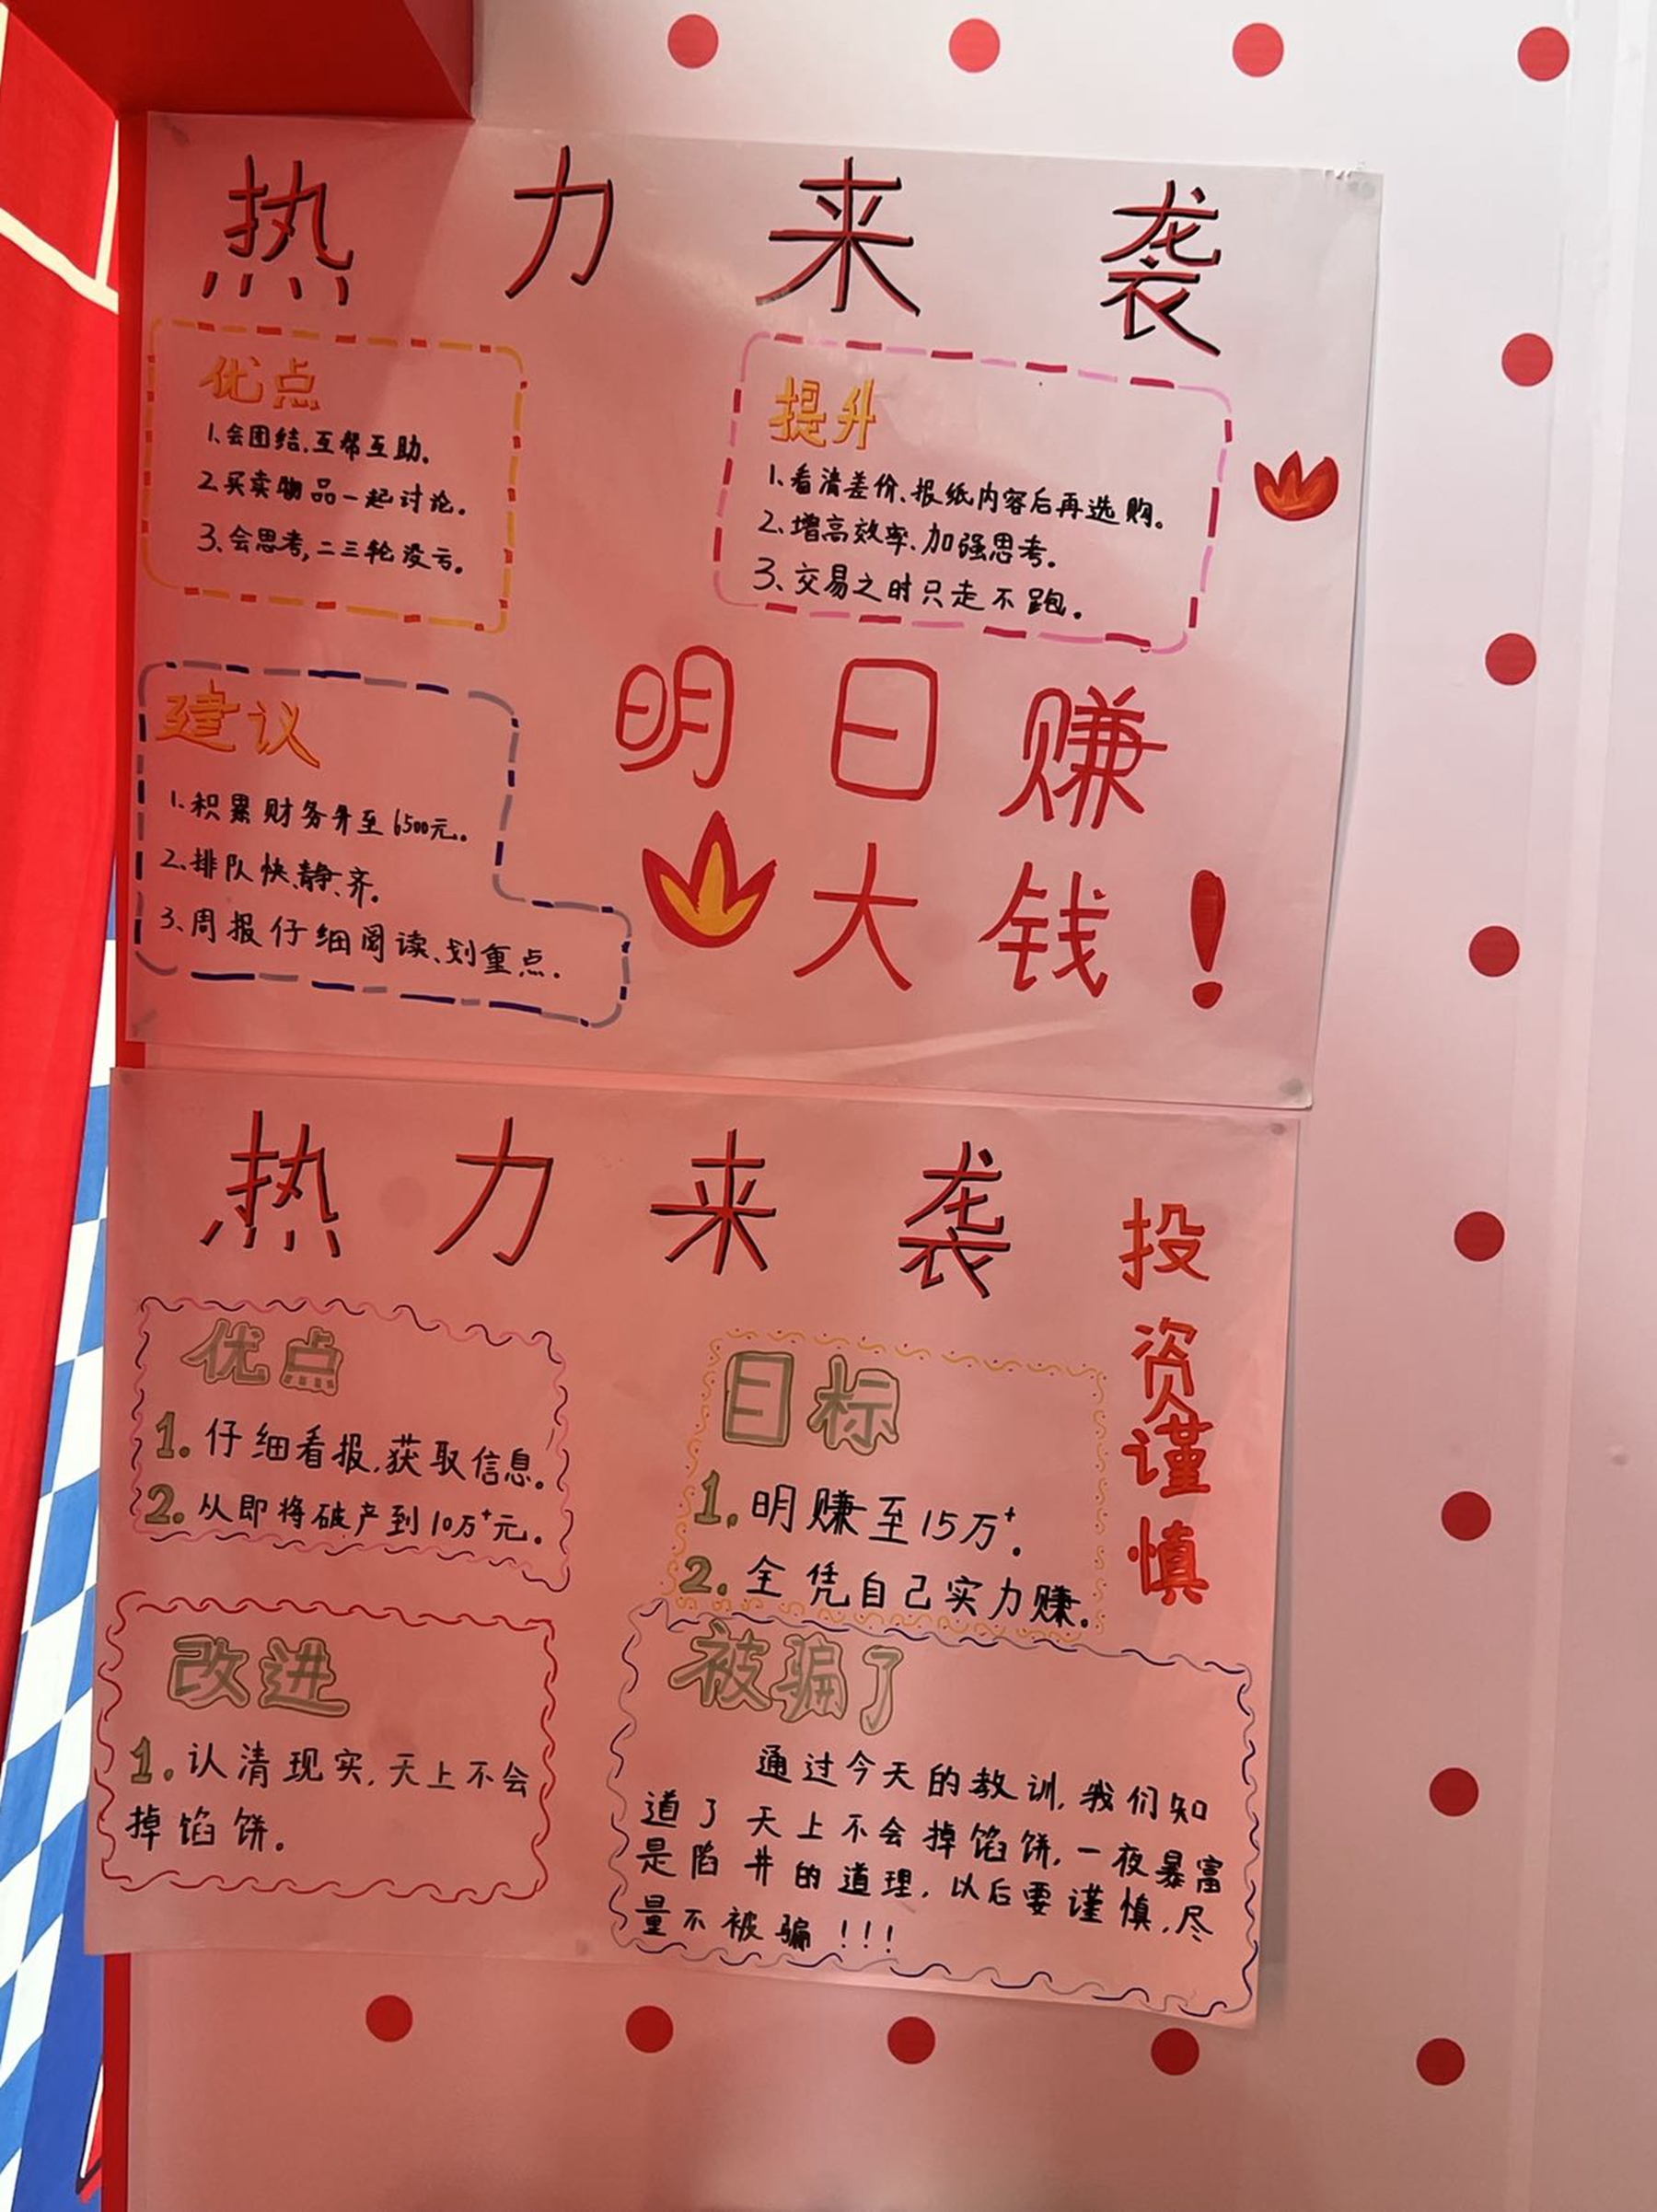 热力来袭
优点
1、会团结,互帮互助。
2、买卖物品一起讨论。
3、会思考,二三轮没亏。
提升
1、看清差价、报纸内容后再选购。
2、增高效率、加强思考。
3、交易之时只走不跑。
建议
1、积累财务升至6500元。
2、排队快、静、齐。
3、周报仔细阅读、划重点.
明日赚
大钱!
热力来袭
投资谨慎
优点
1. 仔细看报,获取信息。
2. 从即将破产到10万⁺元。
目标
1. 明赚至15万⁺.
2. 全凭自己实力赚。
改进
1. 认清现实,天上不会
掉馅饼。
被骗了
通过今天的教训,我们知
道了天上不会掉馅饼,一夜暴富
是陷井的道理,以后要谨慎,尽
量不被骗!!!